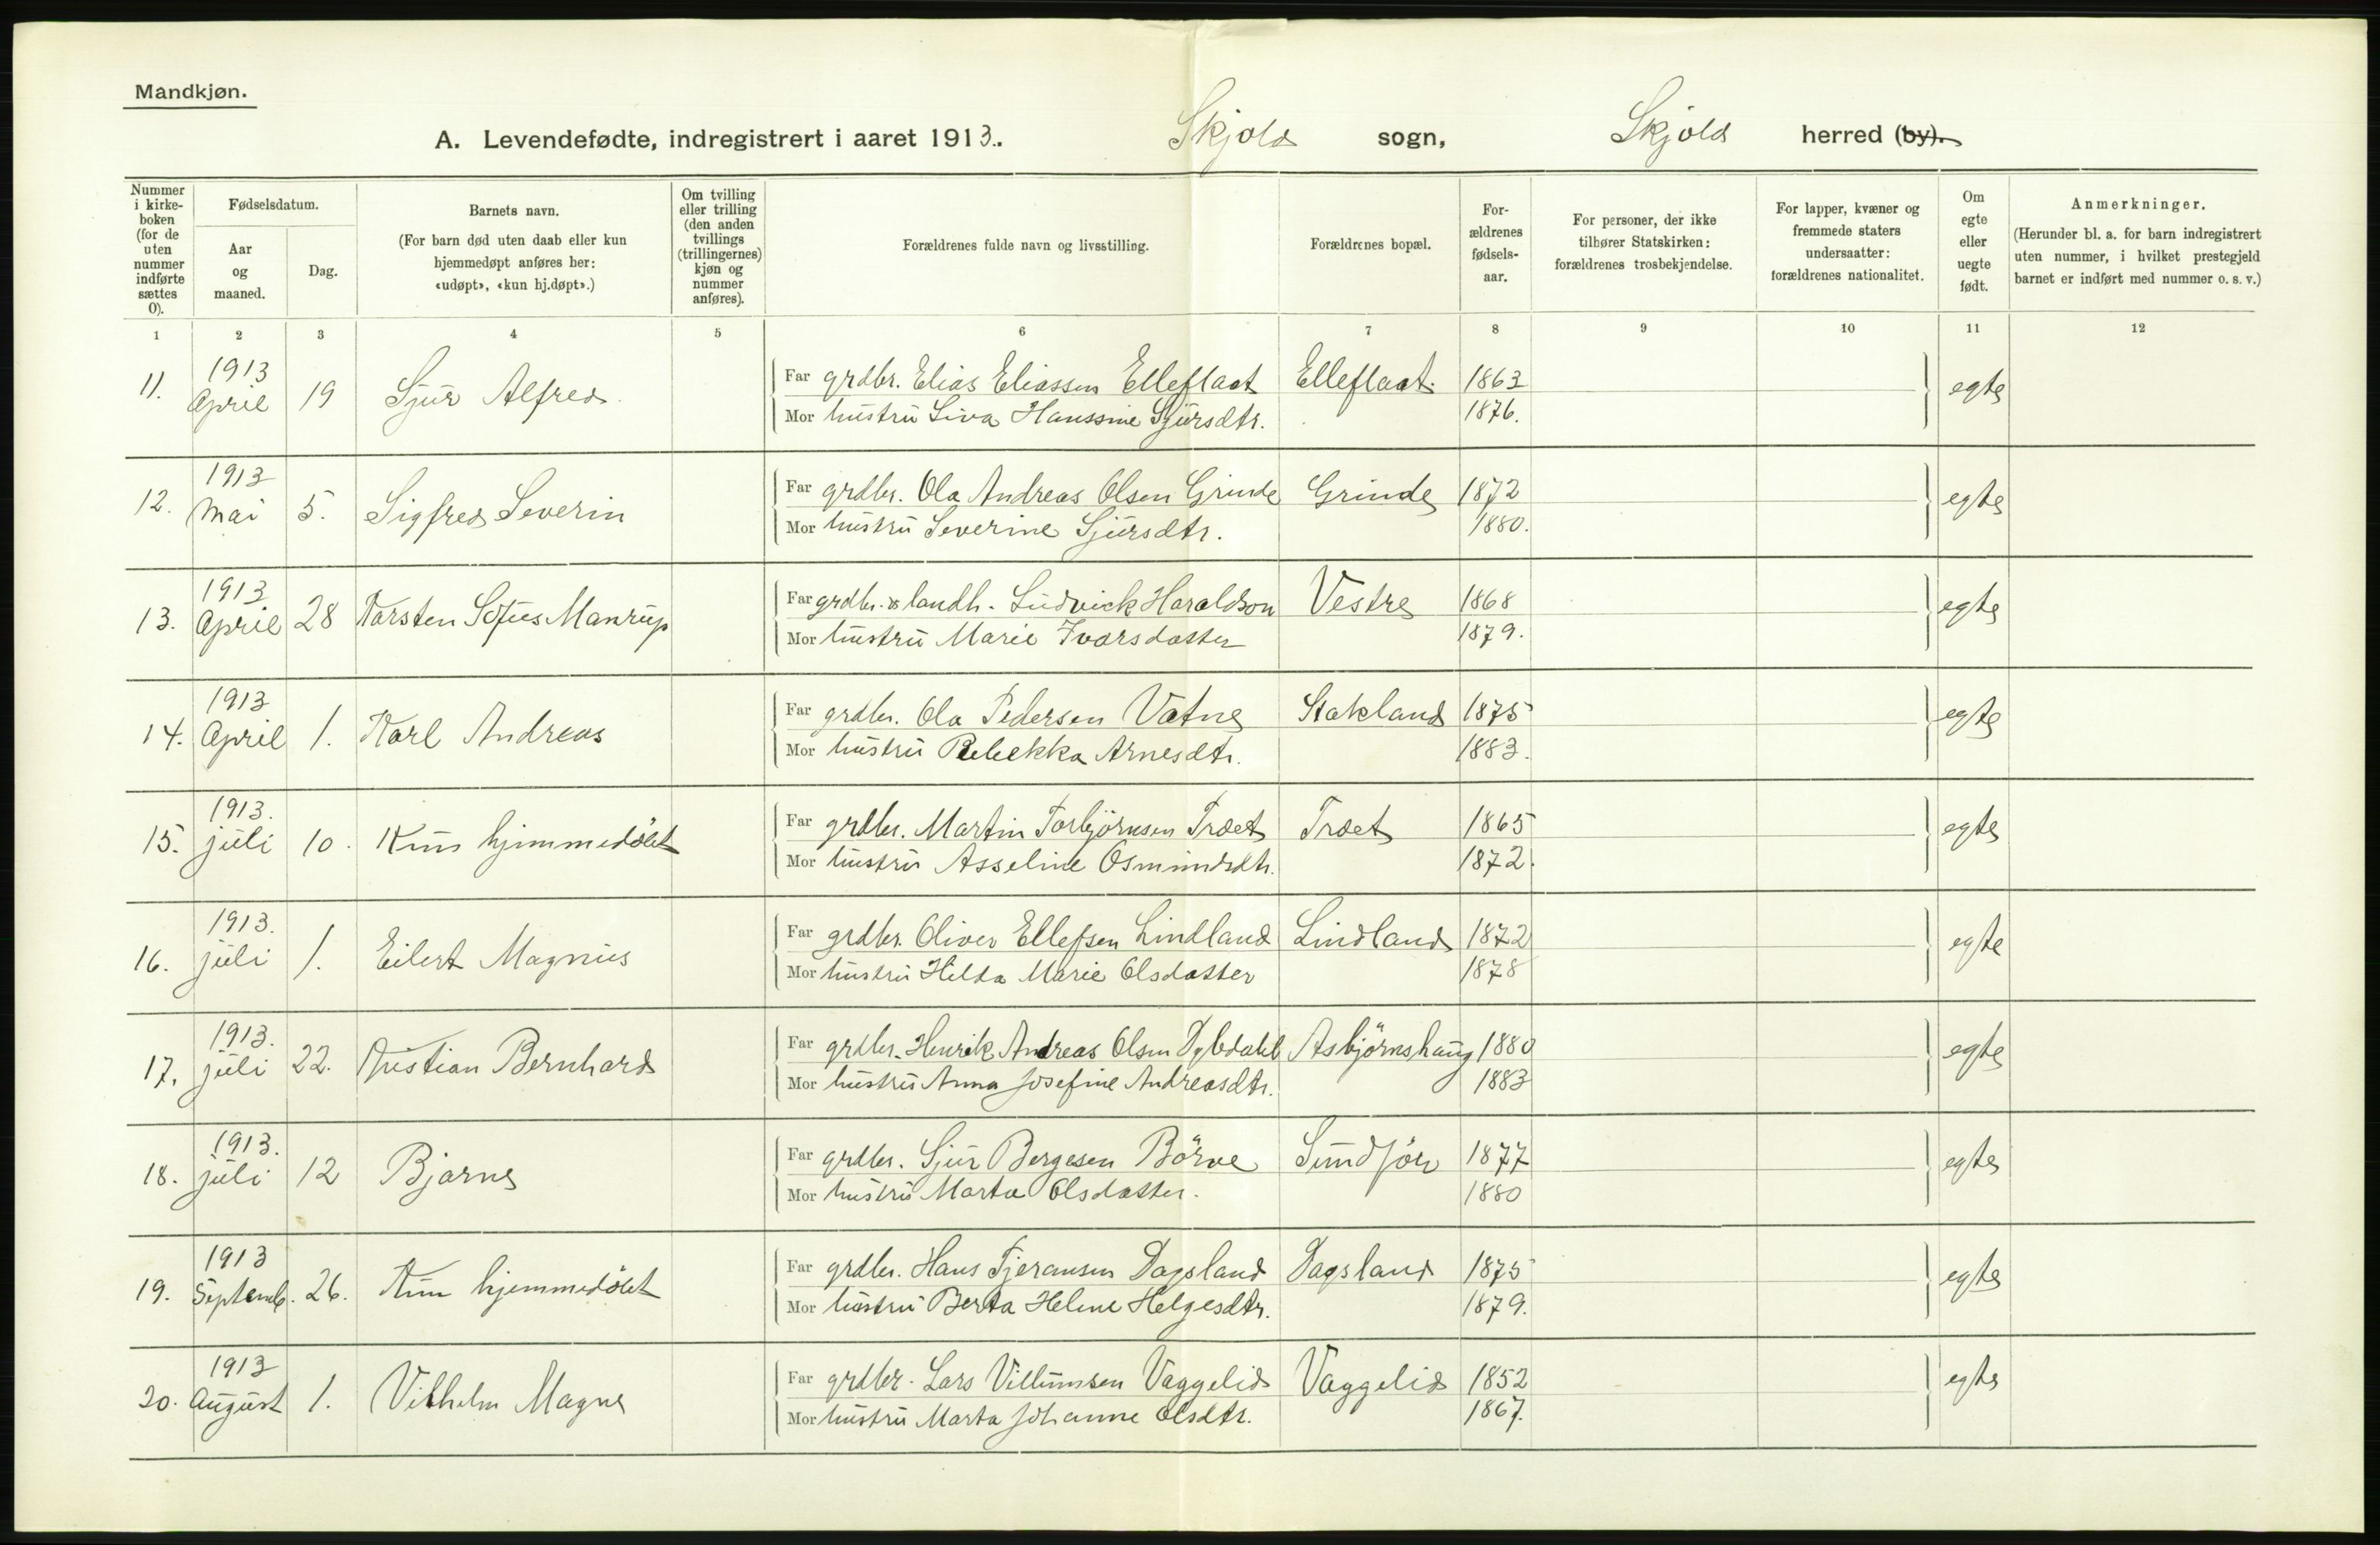 Mandkjøn.
A. Levendefødte, indregistrert i aaret 1913. Skjold sogn, Skjold herred (by).
Nummer i kirke-boken (for de uten nummer indførte sættes 0).
Fødselsdatum.
Aar og maaned.
Dag.
Barnets navn.
(For barn død uten daab eller kun hjemmedøpt anføres her: «udøpt», «kun hj.døpt».)
Om tvilling eller trilling (den anden tvillings (trillingernes) kjøn og nummer anføres).
Forældrenes fulde navn og livsstilling.
Forældrenes bopæl.
For-ældrenes fødsels-aar.
For personer, der ikke tilhører Statskirken: forældrenes trosbekjendelse.
For lapper, kvæner og fremmede staters undersaatter: forældrenes nationalitet.
Om egte eller uegte født.
Anmerkninger.
(Herunder bl. a. for barn indregistrert uten nummer, i hvilket prestegjeld barnet er indført med nummer o. s. v.)
1 2 3 4 5 6 7 8 9 10 11 12
11. 1913 April 19 Sjur Alfred. Far grdbr. Elias Eliassen Elleflaat Elleflaat. 1863 egte
Mor hustru Siva Hanssine Sjursdtr. 1876.
12. 1913 Mai 5. Sigfred Severin Far grdbr. Ola Andreas Olsen Grinde Grinde 1872 egte
Mor hustru Severine Sjursdtr. 1880.
13. 1913 April 28 Karsten Sofus Manrup Far grdbr. & landh. Ludvick Haraldson Vestre 1868 egte
Mor hustru Marie Ivarsdatter 1879.
14. 1913 April 1. Karl Andreas Far grdbr. Ola Pedersen Vatne Stakland 1875 egte
Mor hustru Rebekka Arnesdtr. 1883.
15. 1913. juli 10. Kun hjimmedöbt Far grdbr. Martin Torbjörnsen Træet Træet 1865 egte
Mor hustru Asseline Osmundsdtr. 1872.
16. 1913. juli 1. Eilert Magnus Far grdbr. Oliver Ellefsen Lindland Lindland 1872 egte
Mor hustru Hilda Marie Olsdatter 1878
17. 1913. juli 22. Kristian Bernhard Far grdbr. Henrik Andreas Olsen Dybdahl Asbjörnshaug 1880 egte
Mor hustru Anna Josefine Andreasdtr. 1883
18. 1913. juli 12 Bjarne Far grdbr. Sjur Bergesen Börve Sundför 1877 egte
Mor hustru Marta Olsdatter. 1880
19. 1913 Septemb. 26. Kun hjemmedöbt Far grdbr. Hans Tjeransen Dagsland Dagsland 1875 egte
Mor hustru Berta Helene Helgesdtr. 1879.
20. 1913 August 1. Vilhelm Magne Far grdbr. Lars Villumsen Vaggelid Vaggelid 1852 egte
Mor hustru Marta Johanne Olsdtr. 1867.